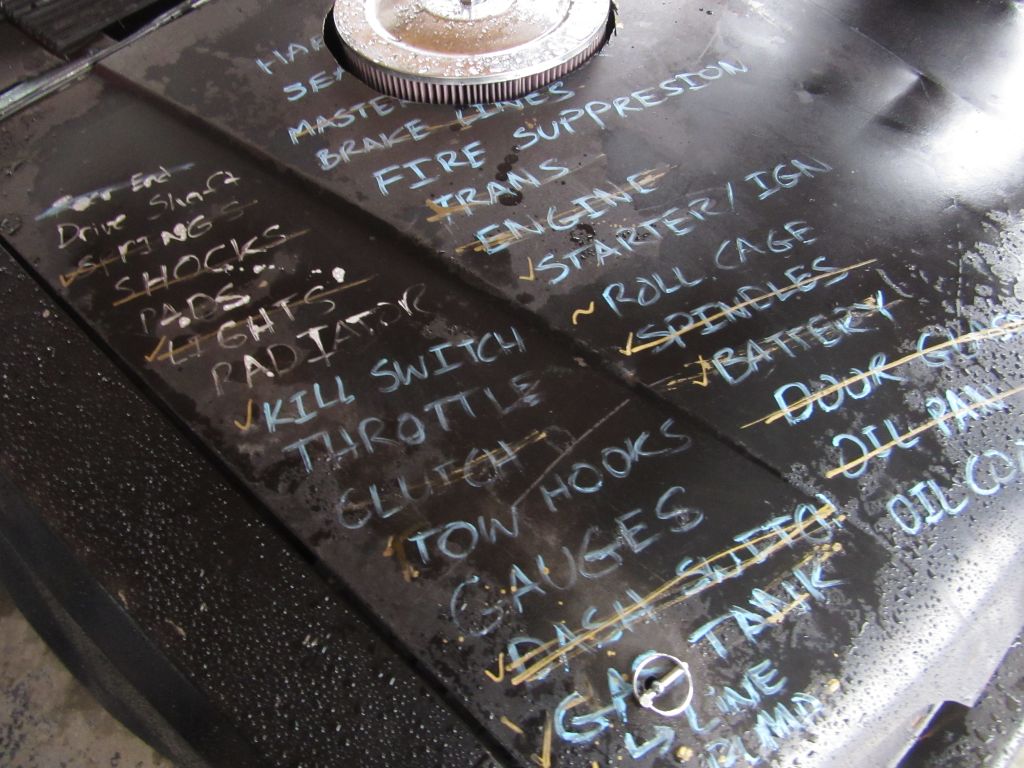 HA
SEA
MASTE
BRAKE LINES
FIRE SUPPRESION
TRANS
ENGINE
STARTER/IGN
ROLL CAGE
SPINDLES
BATTERY
DOOR GLASS
OIL PAN
OIL CO
End
Drive Shaft
SPRINGS
SHOCKS
PADS
LIGHTS
RADIATOR
KILL SWITCH
THROTTLE
CLUTCH
TOW HOOKS
GAUGES
DASH SWITCH
GAS TANK
LINE
PUMP